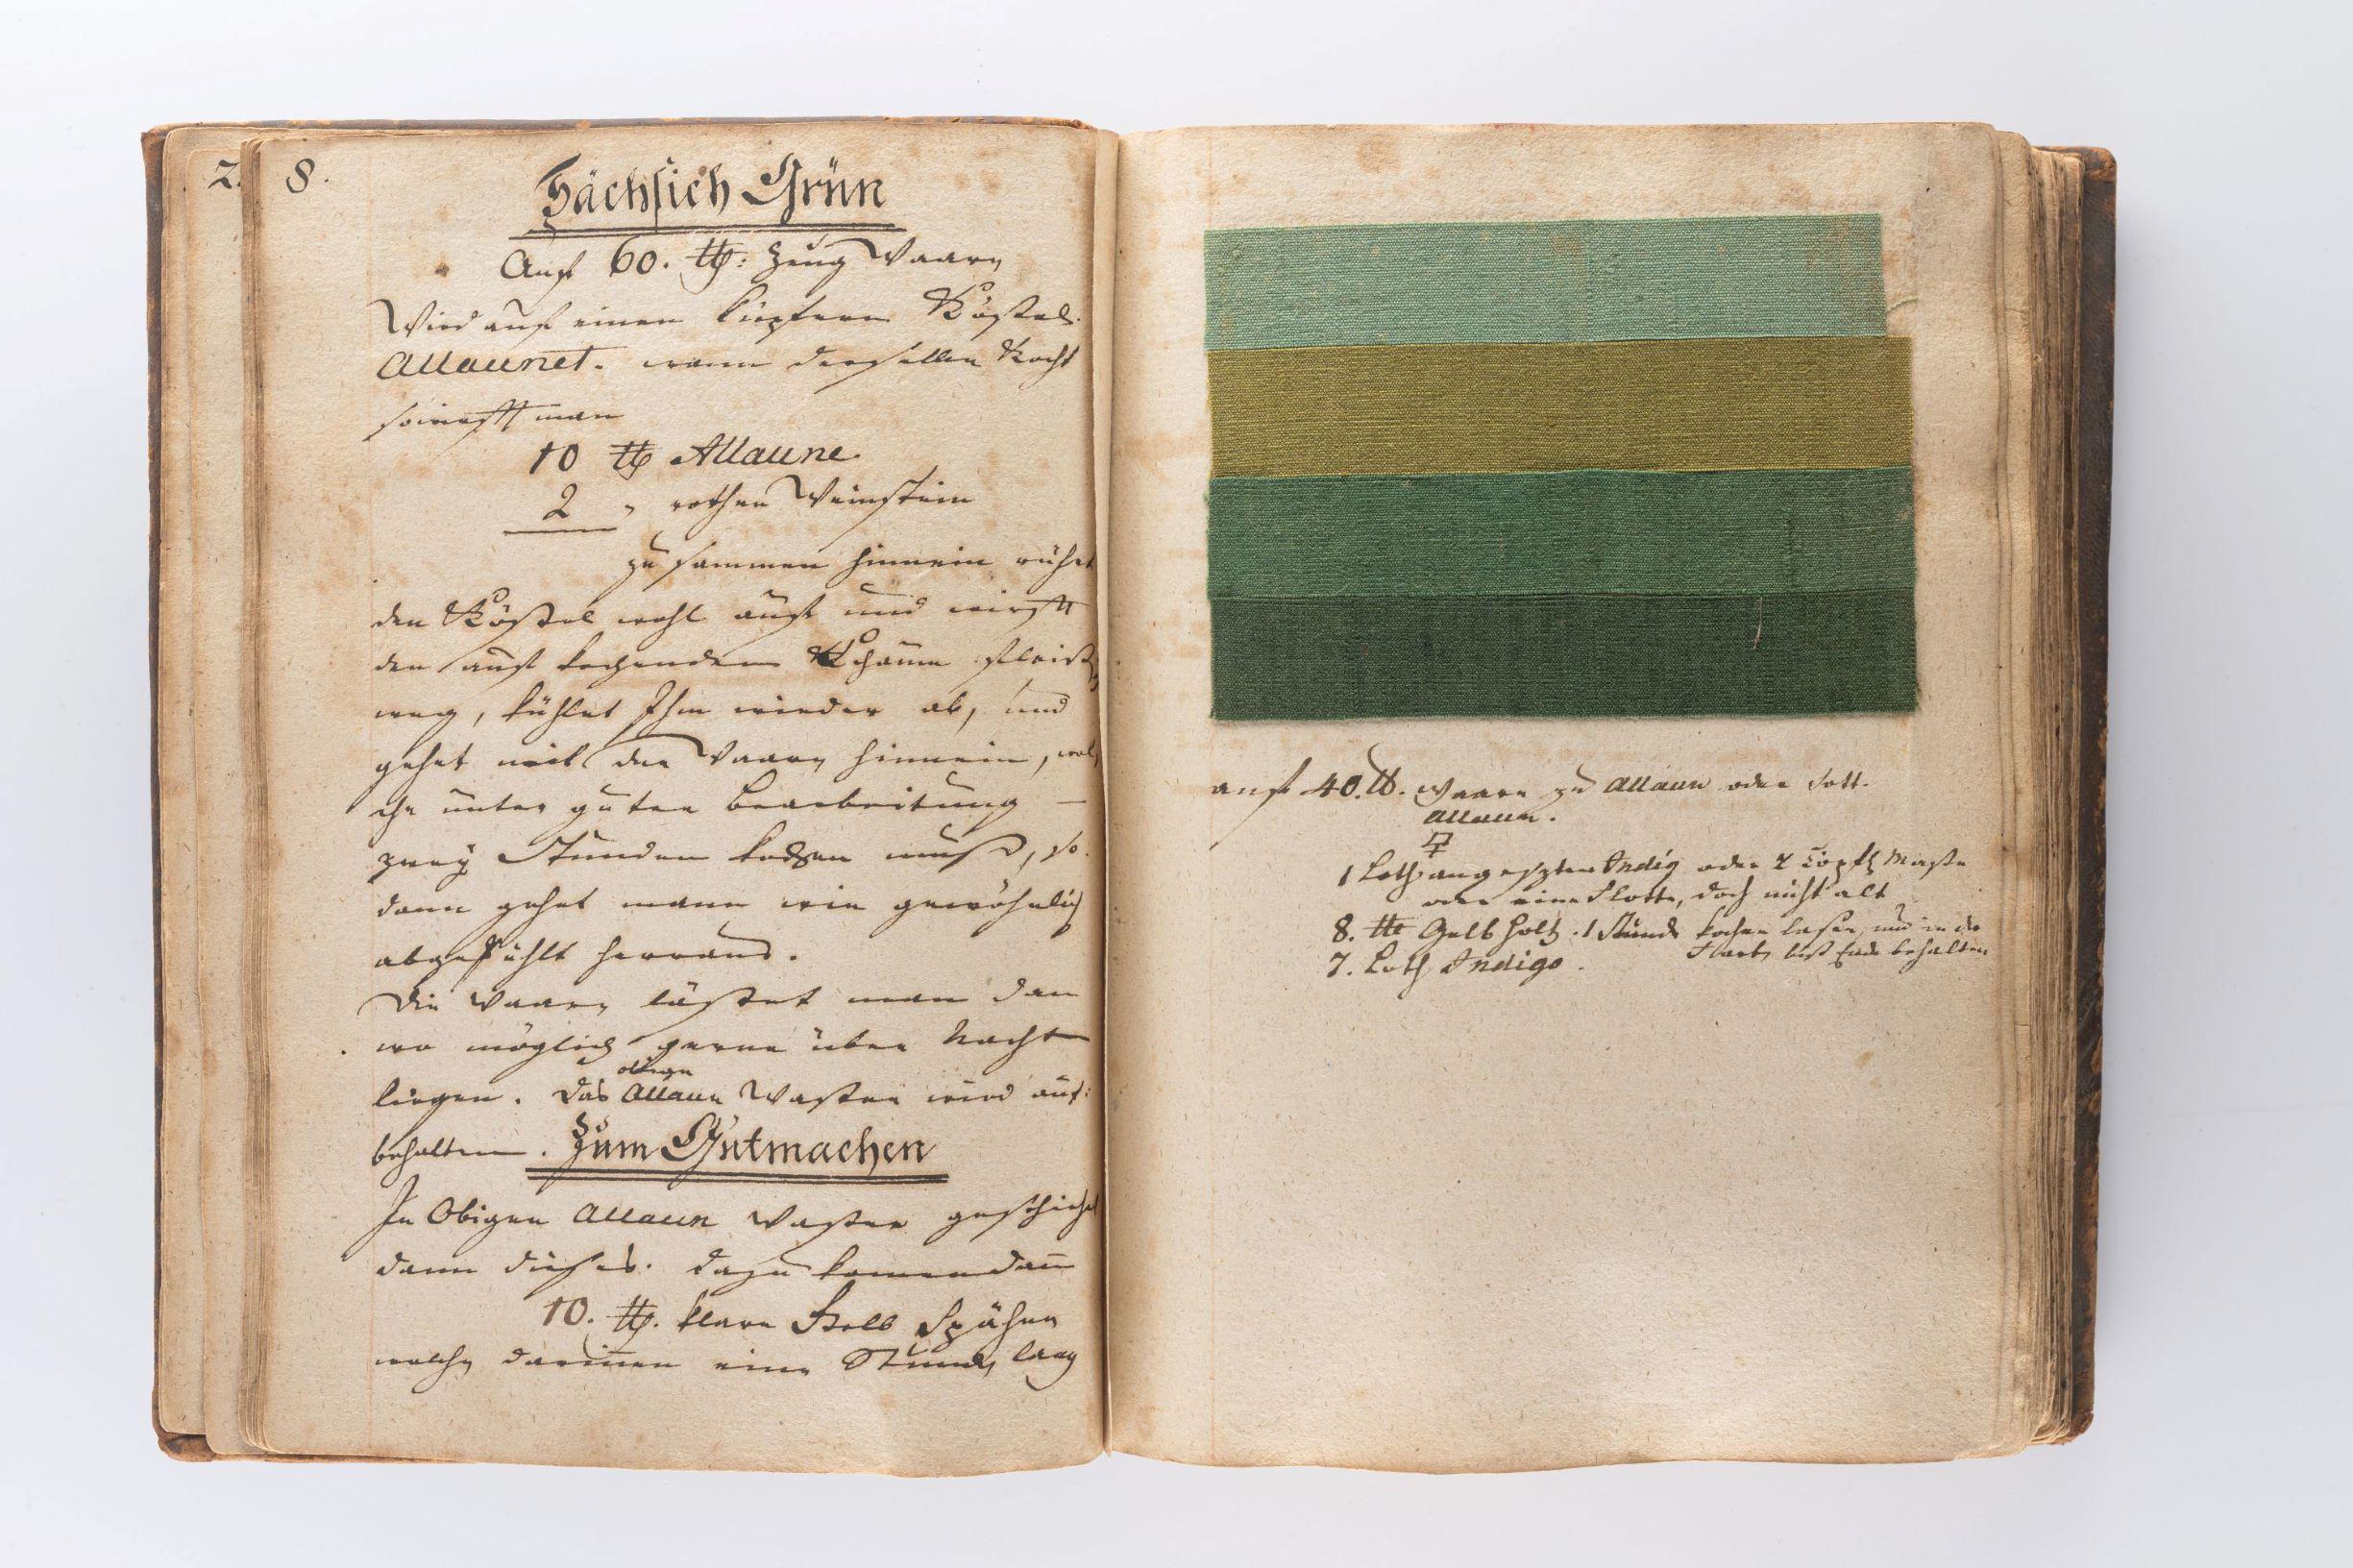 2.
8.
Sächsich Grün
Auf 60. ℔: Zeug Waare
Wird auf einen Küpfern Keßel
Allaunet. wann derselbe Kocht
so man
10 ℔ Allaune
2 " rothen Weinstein
zu sammen hinnein rührt
den Keßel wohl auf und wirfft
den auf kochenden Schaum fleißig
weg, kühlet Ihn wieder ab, und
gehet mit der Waare hinnein, wel
che unter guter Bearbeitung —
zwey Stunden kochen muß, so
dann gehet mann wie gewöhnlich
abgekühlt herraus.
Die Waare läßet man dan
wo möglich gerne über Nacht
liegen. Das obige Allaun Waßer wird auf:
behalten. Zum Gutmachen
In Obigen Allaun Waßer geschieht
dann dieses. dazu komen dan̅
10. ℔. klare Gelb Spähne
welche darin̅en eine Stunde lang
auf 40. ℔. Waare zu Allaun oder Sott.
Allaun.
1 Loth Indig oder 2 Töpfe Maße
oder eine Flotte, doch nicht alt
8. ℔ Gelb holtz. 1 Stunde kochen laßen, und in der
7. Loth Indigo. biß Ende behalten